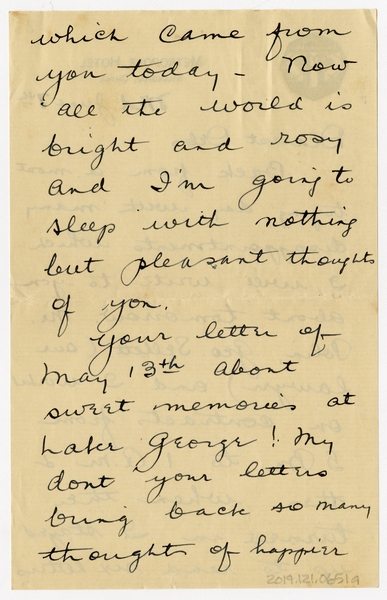 which came from
you today - Now
all the world is
bright and rosy
and I'm going to
sleep with nothing
but pleasant thoughts
of you.
Your letter of
May 13th about
sweet memories at
Lake George! My
dont your letters
bring back so many
thoughts of happier
2019.121.0651a